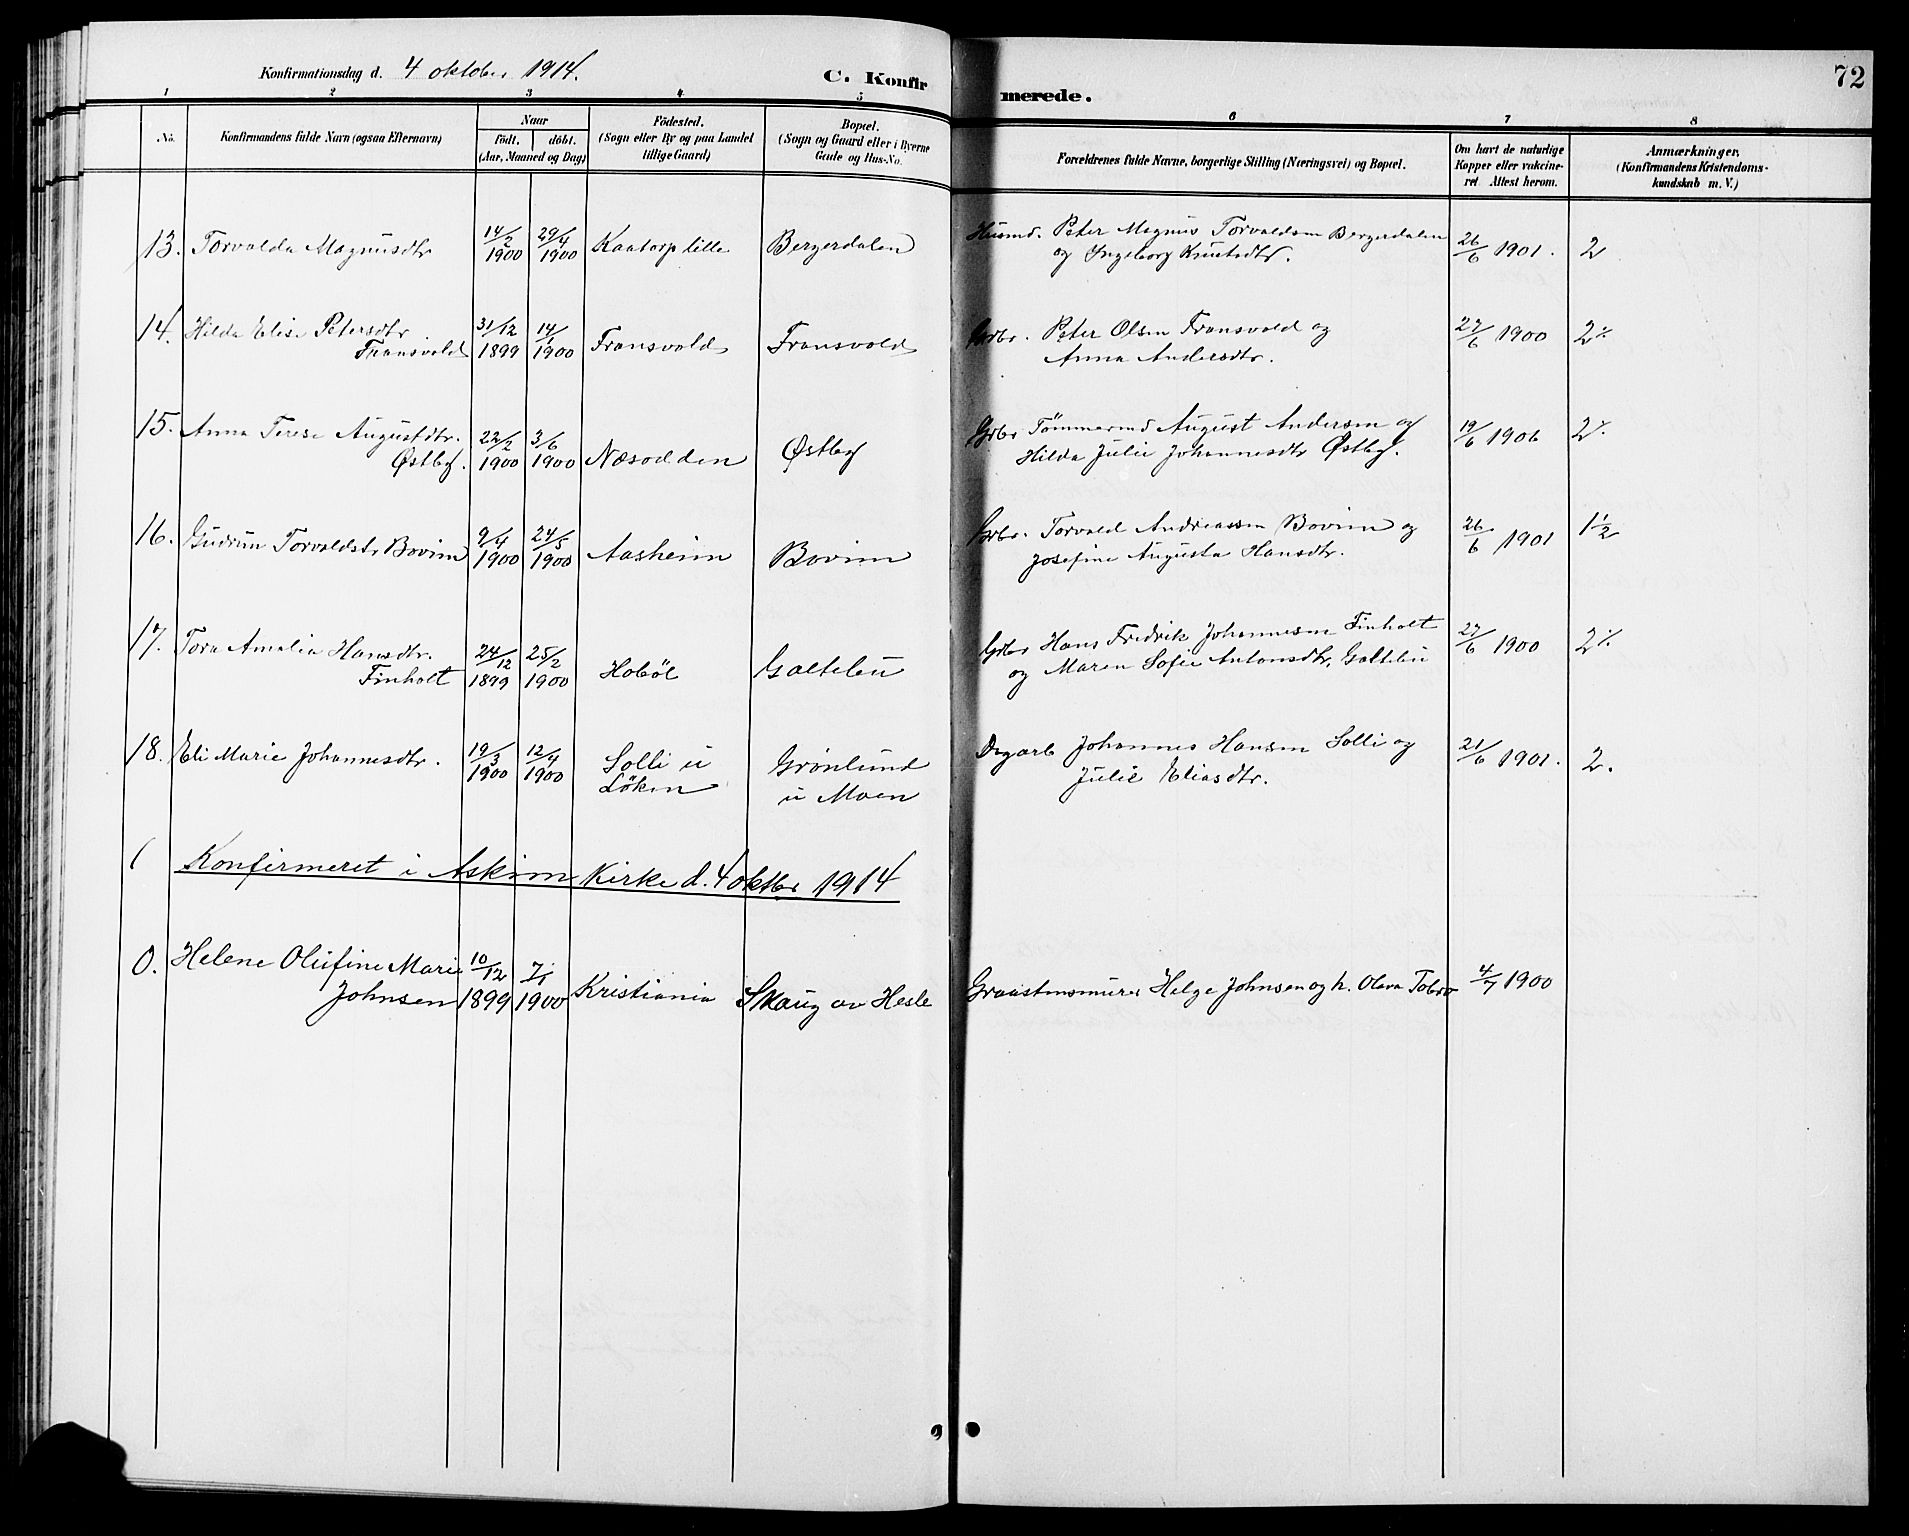 Konfirmationsdag d. 4 oktober 1914.
C. Konfir
merede.
72
1 2 3 4 5 6 7 8
No.
Konfirmandens fulde Navn (ogsaa Efternavn)
Naar
födt. döbt.
(Aar, Maaned og Dag)
Födested.
(Sogn eller By og paa Landet
tillige Gaard)
Bopæl.
(Sogn og Gaard eller i Byerne
Gade og Hus-No.
Forældrenes fulde Navne, borgerlige Stilling (Næringsvei) og Bopæl.
Om havt de naturlige
Kopper eller vakcine-
ret Attest herom.
Anmærkninger,
(Konfirmandens Kristendoms-
kundskab m. V.)
13. Torvalda Magnusdtr 14/2 1900 29/4 1900 Kaatorp lille Bergerdalen Husmd. Peter Magnus Torvaldsen Bergerdalen 26/6 1901. 2
og Ingeborg Knutsdtr.
14. Hilda Elise Petersdtr 31/12 1899 14/1 1900 Fransvold Fransvold Grbr. Peter Olsen Fransvold og 27/6 1900 2
Fransvold Anna Andersdtr.
15. Anna Terese Augustdtr. 22/2 1900 3/6 1900 Næsodden Østby Grbr Tömmermd August Andersen og 19/6 1906 2
Østby. Hilda Julie Johannesdtr Østby.
16. Gudrun Torvaldsdtr Bovim 9/4 1900 24/5 1900 Aasheim Bovim Grbr. Torvald Andreassen Bovim og 26/6 1901 1 1/2
Josefine Augusta Hansdtr.
17. Tora Amalia Hansdtr. 24/12 1899 25/2 1900 Hobøl Galtebu Grbr Hans Fredrik Johannesen Finholt 27/6 1900 2
Finholt og Maren Sofie Antonsdtr, Galtebu
18. Eli Marie Johannesdtr. 19/3 1900 12/4 1900 Solli u Grönlund Dagarb Johannes Hansen Solli og 21/6 1901. 2.
Löken u Moen Julie Eliasdtr.
Konfirmeret i Askim Kirke d. 4 oktbr 1914
0. Helene Olufine Marie 10/12 1899 7/1 1900 Kristiania Skaug av Hesle Graastensmurer Helge Johnsen og h. Olava 4/7 1900
Johnsen